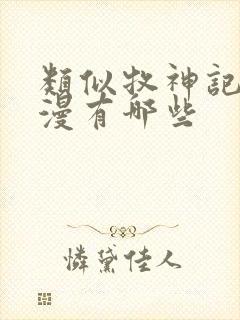 類似牧神記
漫有那些
憐黛佳人